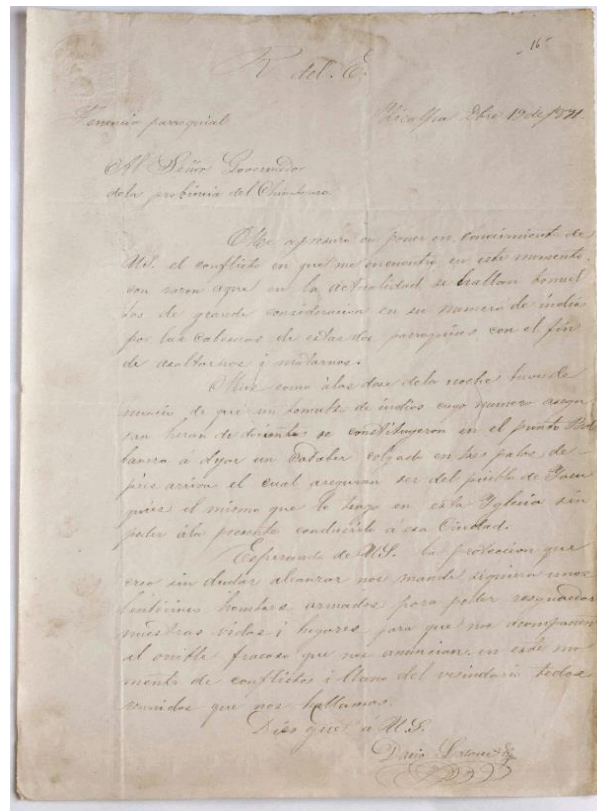 16
R del. E.
Tenencia parroquial
Licalfra Dbre 19 de 1871.
Al Señor Governador
de la probincia del Chimborazo
Me apresuro en poner en conocimiento de
U.S. el conflicto en que me encuentro en este momento
con razon aque en la actualidad se hallan tomul
tos de grande consideracion en su numero de indios
por las cabeceras de estas dos parroquias con el fin
de asaltarnos i matarnos.
Mas como álas dose dela noche tuve de
nuncio de que un tomulto de indios cuyo numero asegu
ran heran de docientos se constituyeron en el punto
á dejar un cadaber colgado en tres palos de
pies arriva el cual aseguran ser del pueblo de
el mismo que lo tengo en esta Yglesia sin
poder ála presente conducirlo á esa Ciudad.
Esperando de U.S. la proteccion que
creo sin dudar alcanzar nos mande siquiera unos
hombres armados para poder resguardar
nuestras vidas i hogares para que nos acompañen
al orrible fracaso que nos anuncian, en este mo
mento de conflictos i llano del vesindario todos
reunidos que nos hallamos.
Dios gue á U.S.